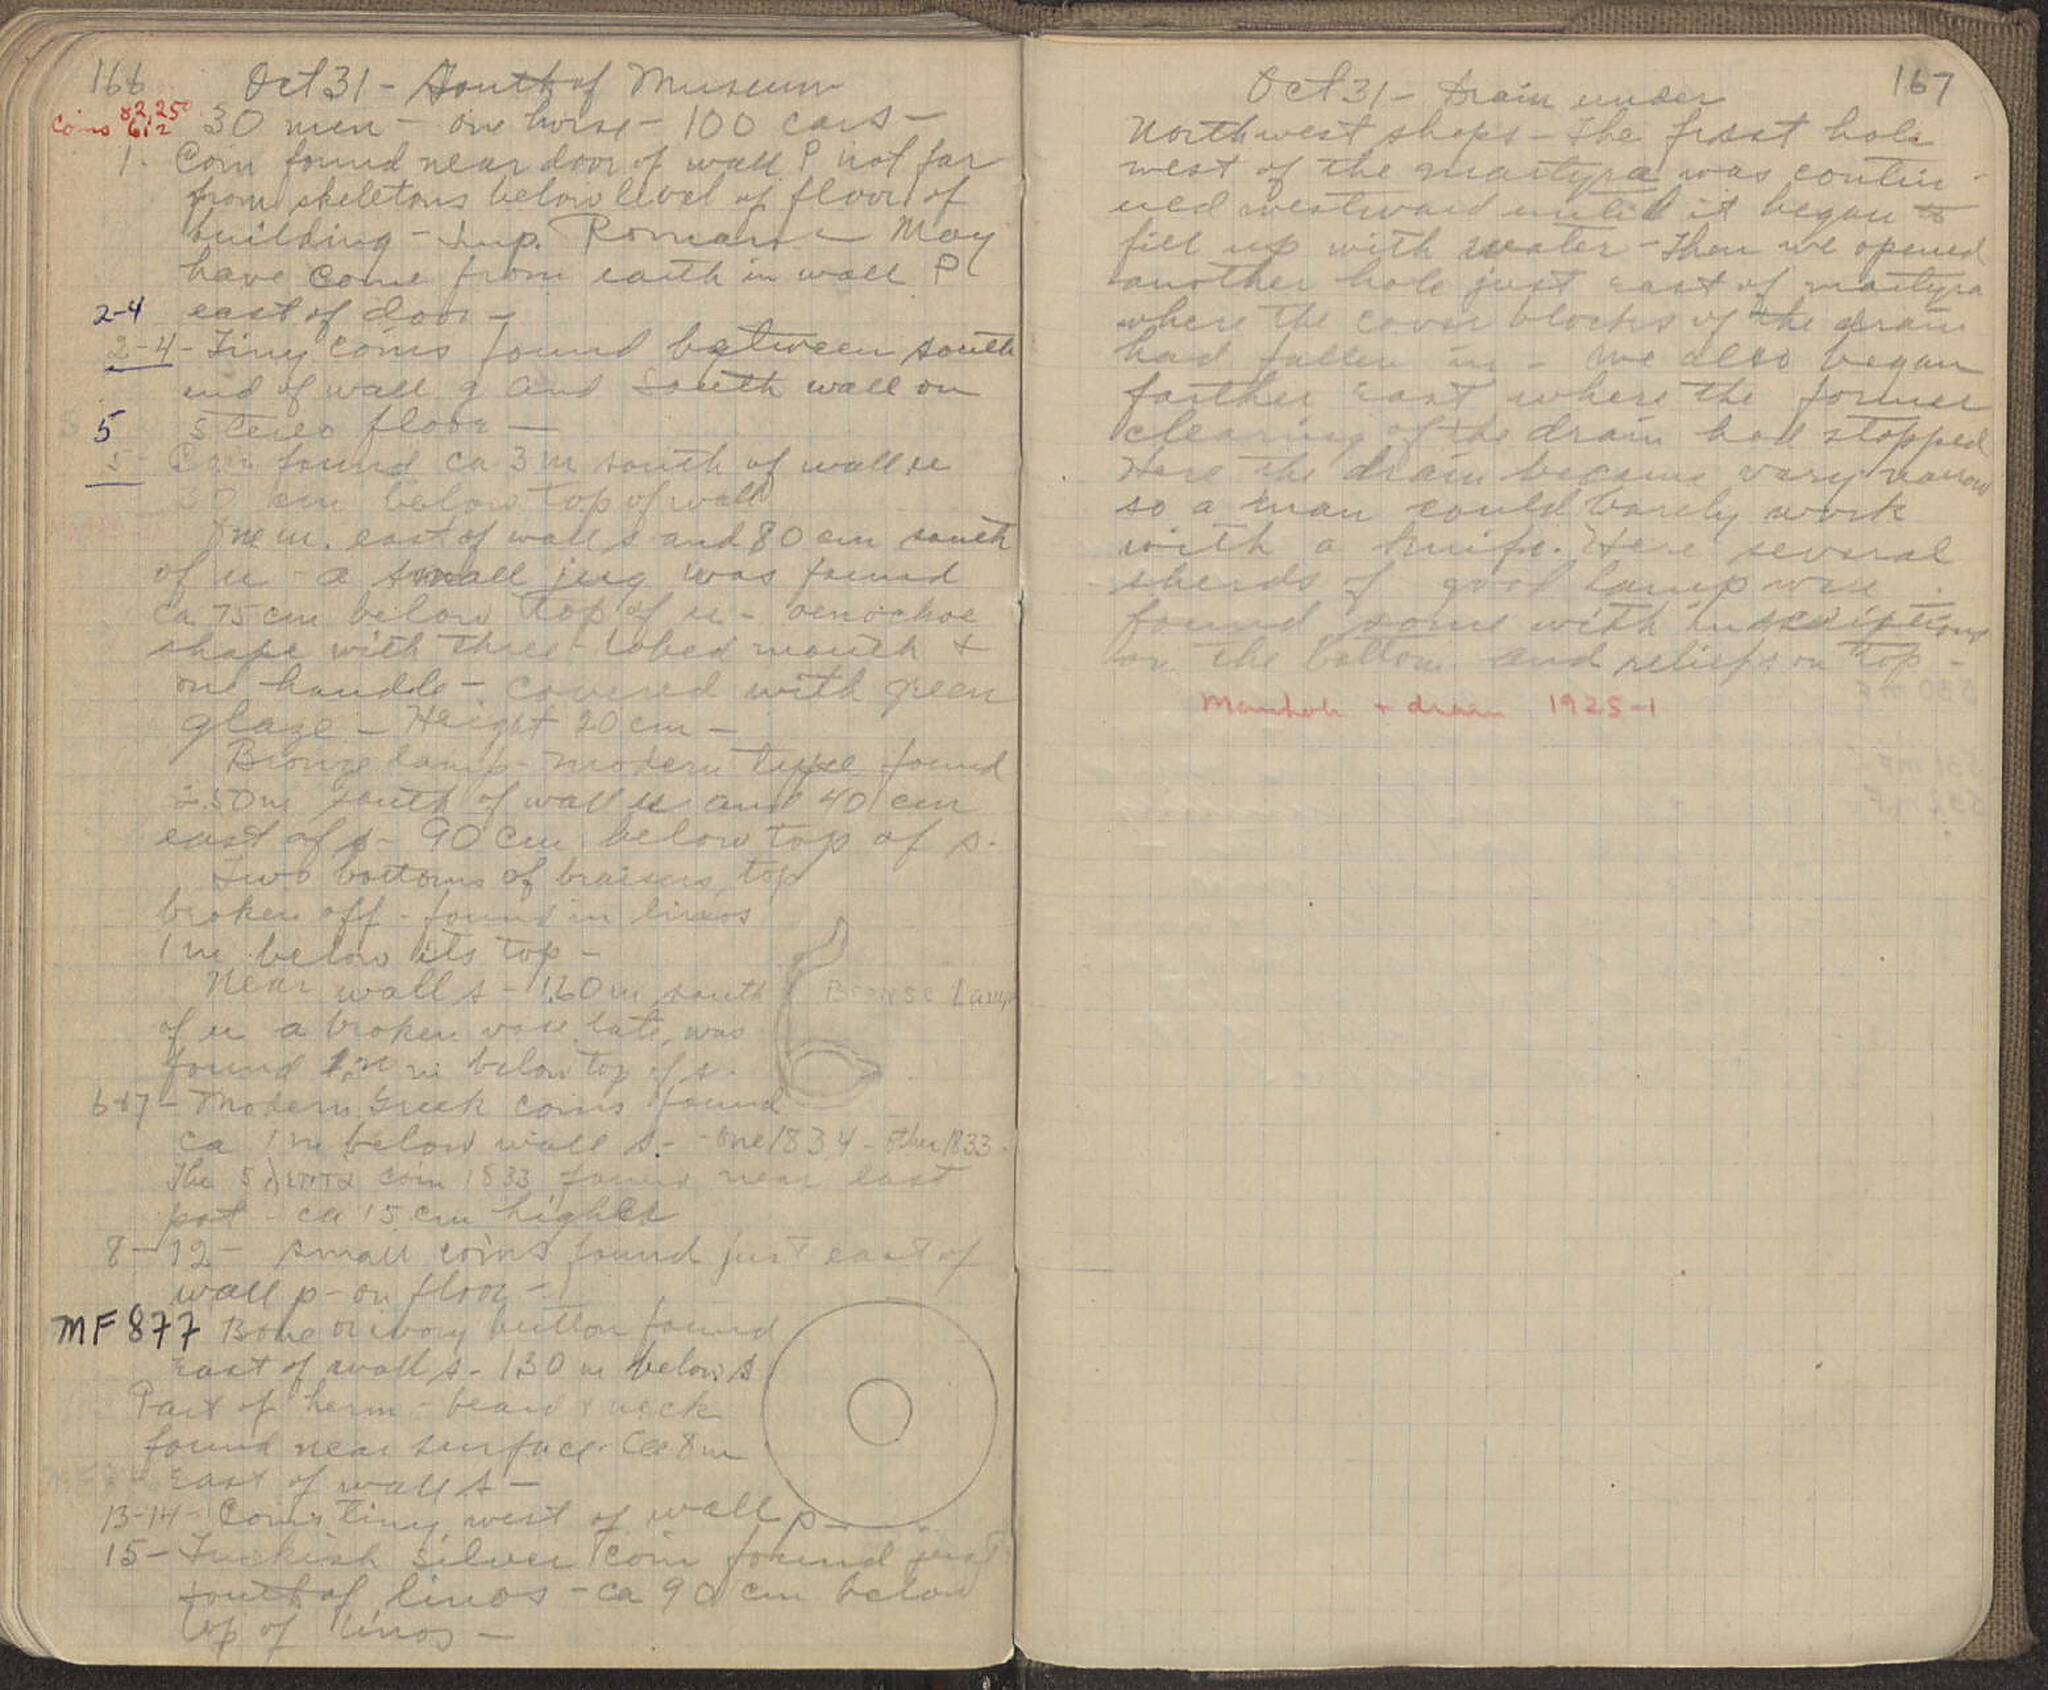 166
Oct 31 - South of Museum
Coins 82,250
612
30 men - one horse - 100 cars -
1- Coin found near door of wall P not far
from skeletons below level of floor of
building - Imp. Roman - May
have come from earth in wall P
2-4 east of door -
2-4 - Tiny coins found between south
end of wall q and South wall on
5 stereo floor -
5- Coin found ca 3 m south of wall u
30 cm below top of wall
One m. east of wall s and 80 cm south
of u - a small jug was found
ca 75 cm below top of u - oenochoe
shape with three-lobed mouth +
one handle - covered with green
glaze - Height 20 cm -
Bronze lamp - modern type found
2.50 m south of wall u and 40 cm
east of s - 90 cm below top of s.
Two bottoms of braisers, top
broken off - found in linos
1 m below its top -
Near wall s - 1.60 m south
Bronse Lamp
of u a broken vase, late, was
found m below top of s.
6+7 - Modern Greek coins found
ca 1 m below wall s. - One 1834 - Other 1833.
The 5 λεπτα coin 1833 found near last
pot - ca 15 cm higher
8-12 - small coins found just east of
wall p - on floor -
MF 877 Bone or ivory button found
East of wall s - 1.30 m below s
Part of herm - beard & neck
found near surface. Ca 8 m
East of wall s -
13-14 - Coins, tiny, west of wall p -
15 - Turkish silver coin found just
south of linos - ca 90 cm below
top of linos -
167
Oct 31 - Drain under
Northwest shops - The first hole
west of the martyra was contin-
ued westward until it began to
fill up with water - Then we opened
another hole just east of martyra
where the cover blocks of the drain
had fallen in - We also began
farther east where the former
clearing of the drain had stopped
Here the drain became very narrow
so a man could barely work
with a knife. Here several
sherds of good lamp were
found some with inscriptions
on the bottom and reliefs on top -
Manhole + drain 1925-1